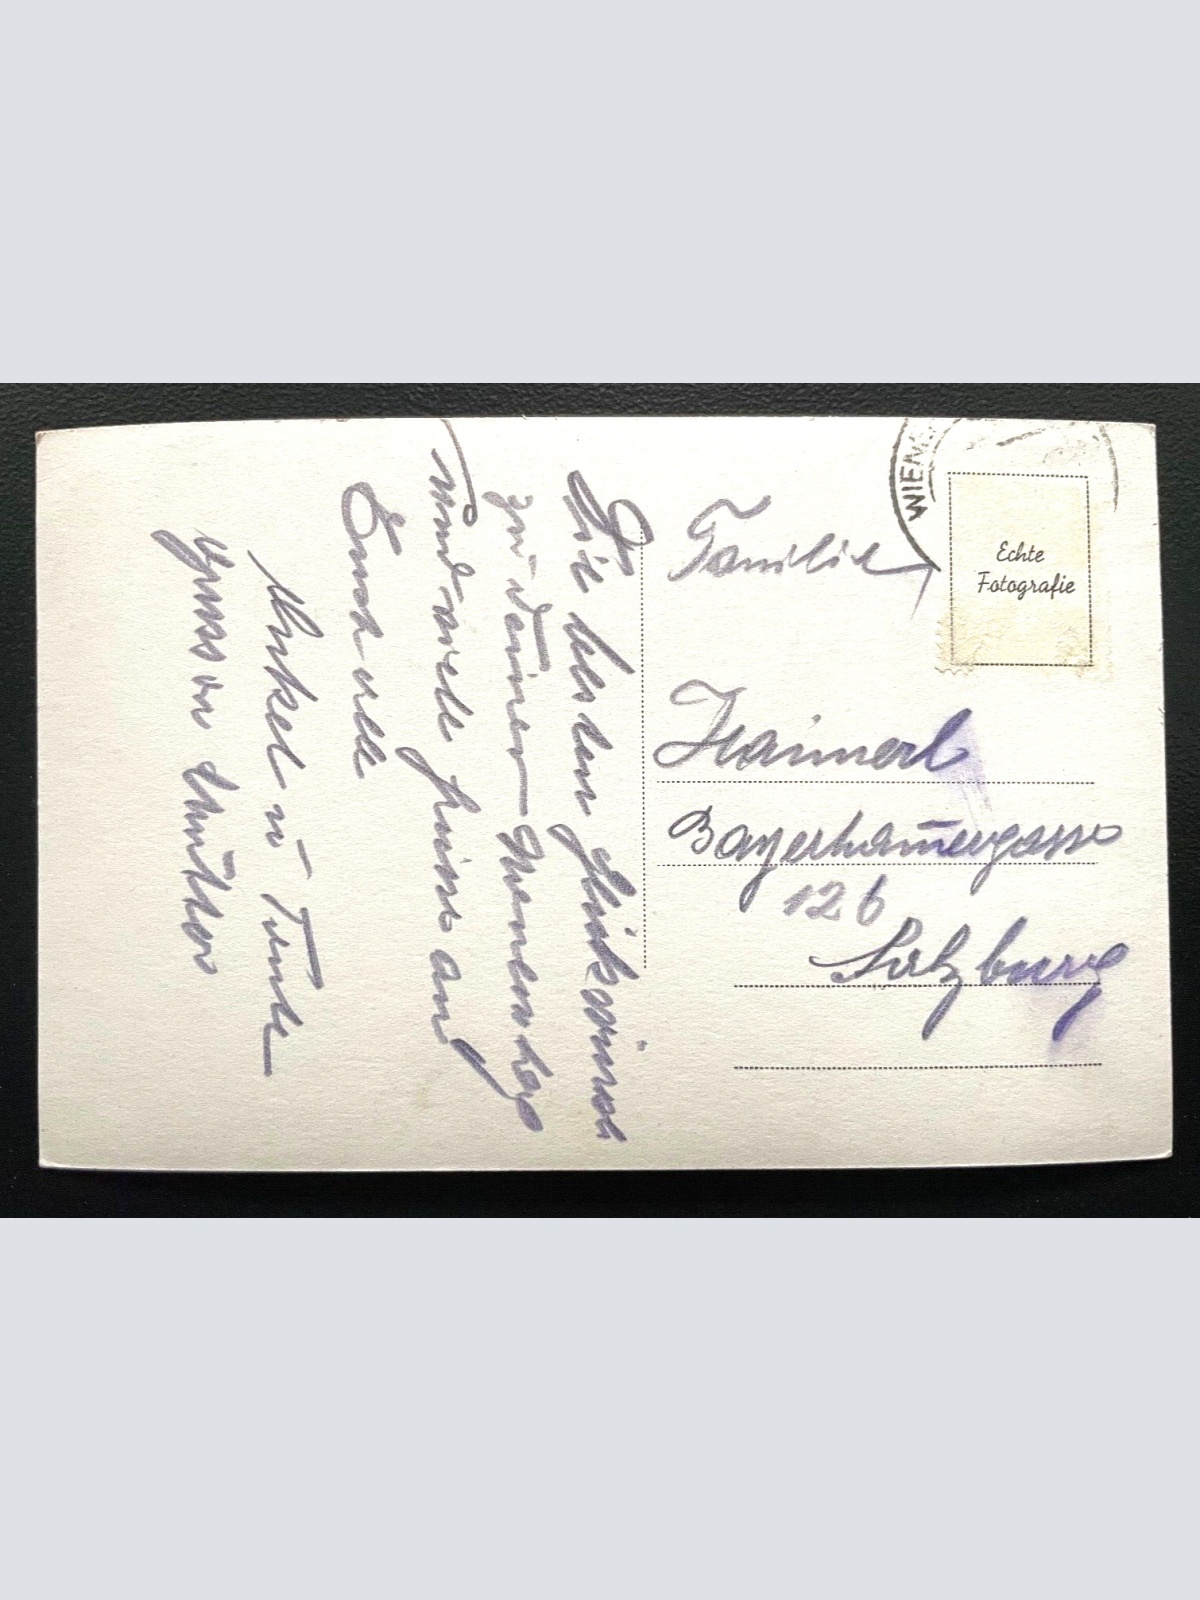 Die besten Glückwünsche
zu Deinem Namenstag
und viele Grüße an
Euch alle
Onkel u. Tante
Grüsse Mutter
WIEN
Echte
Fotografie
Familie
Haimerl
Bayerhamergasse
12b
Salzburg